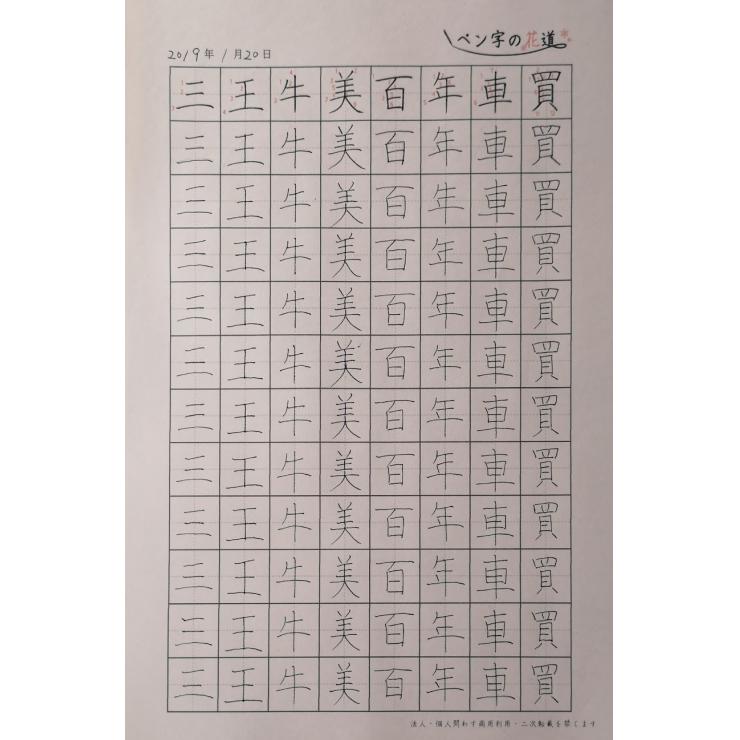 ペン字の花道
2019年1月20日
三王牛美百年車買
三王牛美百年車買
三王牛美百年車買
三王牛美百年車買
三王牛美百年車買
三王牛美百年車買
三王牛美百年車買
三王牛美百年車買
三王牛美百年車買
三王牛美百年車買
三王牛美百年車買
三王牛美百年車買
法人・個人問わず商用利用・二次転載を禁じます